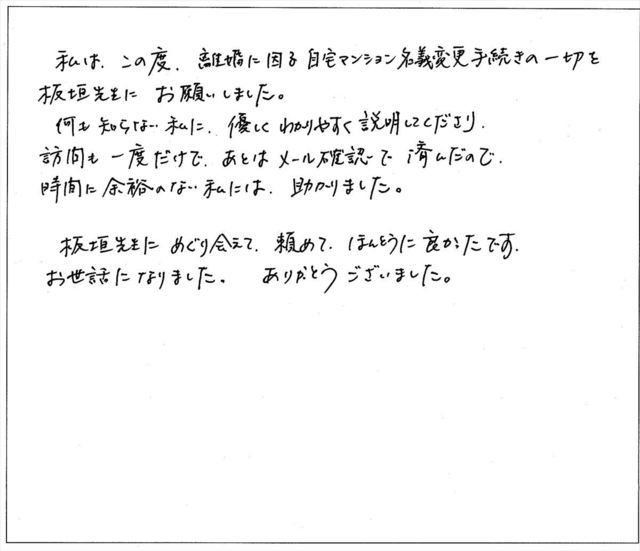 私は、この度、離婚に因る自宅マンション名義変更手続きの一切を
板垣先生に お願いしました。
何も知らない私に、優しくわかりやすく説明してくださり、
訪問も一度だけで、あとはメール確認で済んだので、
時間に余裕のない私には、助かりました。
板垣先生に めぐり会えて、頼めて、ほんとうに良かったです。
お世話になりました。 ありがとうございました。